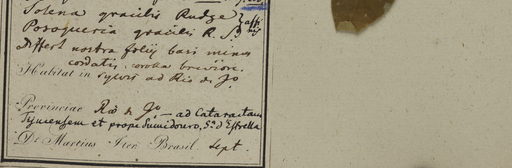 Solena gracilis Rudge } aff
Posoqueria gracilis R. S. }
Differt nostra foliis basi minus
cordatis, corolla breviore.
Habitat in sylvis ad Rio de Jo.
Provinciae Rio de Jo — ad Cataractam
Tijucensem et prope Sumidouro, Sa. d'Estrella
Dr Martius Iter Brasil. Sept.